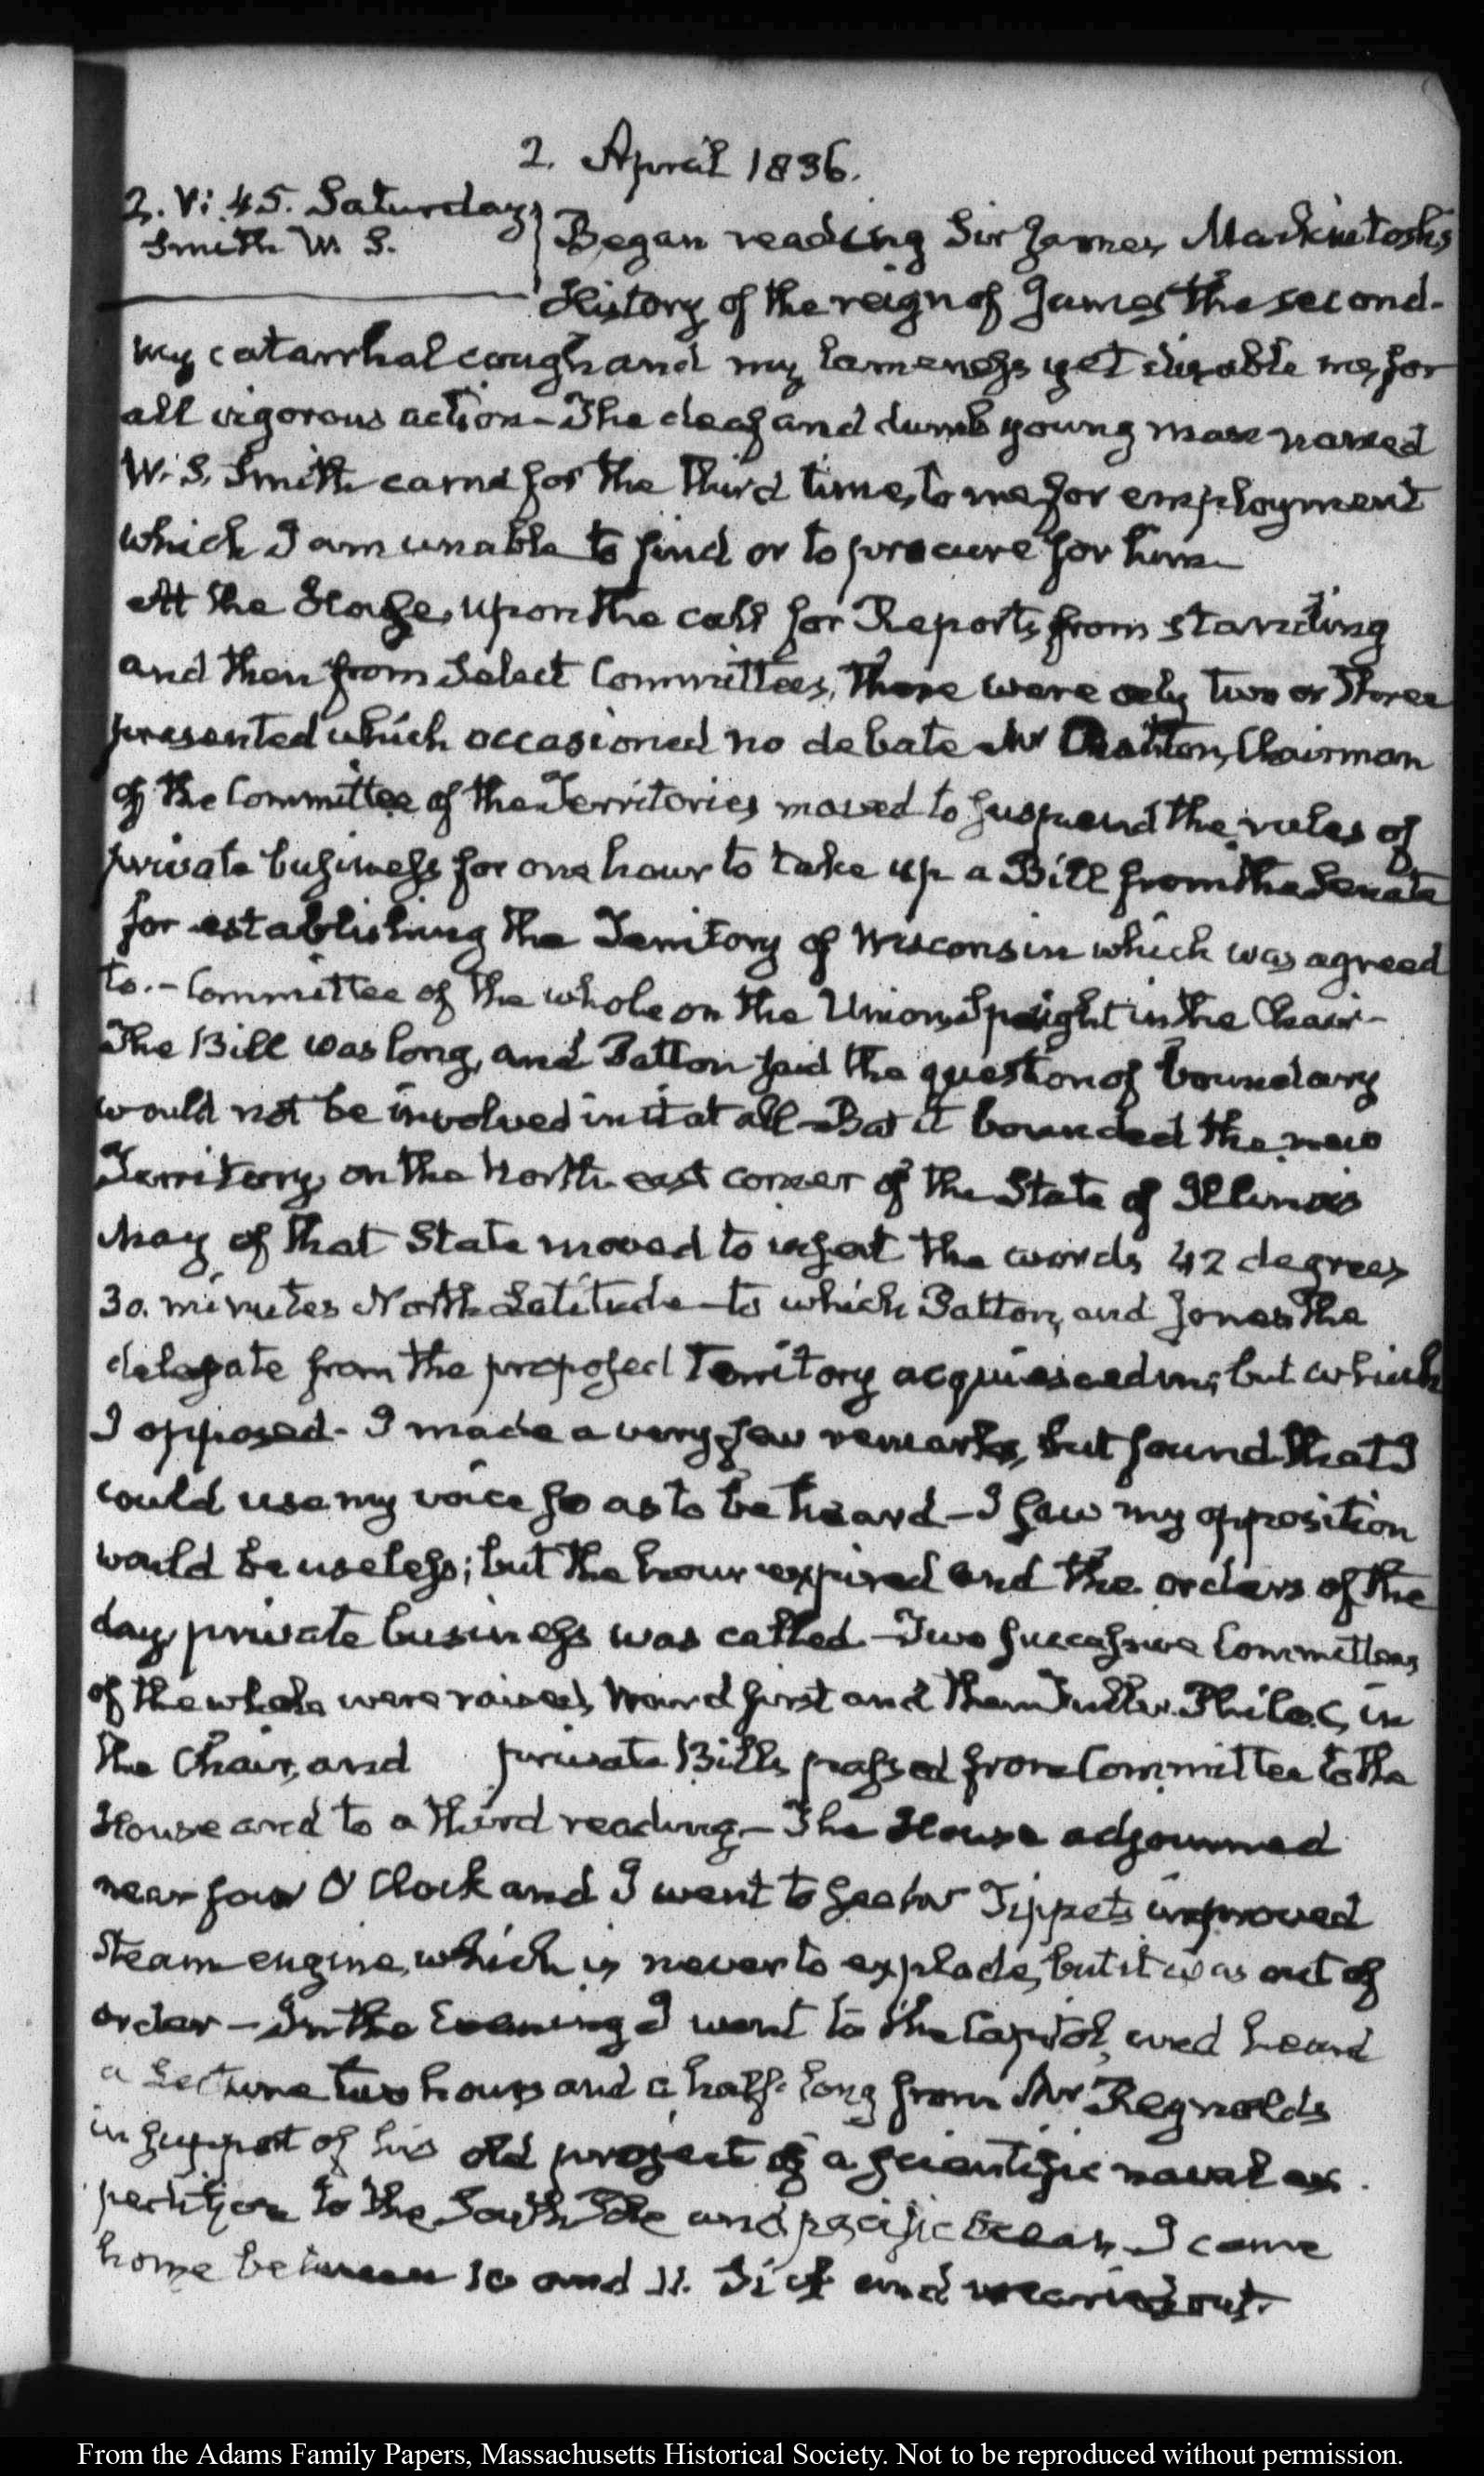 2. April 1836.
2. VI: 45. Saturday
Smith W. S.
Began reading Sir James Mackintosh's
History of the reign of James the second-
my catarrhal cough and my lameness yet disable me for
all vigorous action- The deaf and dumb young man named
W. S. Smith came for the third time, to me for employment
which I am unable to find or to procure for him-
At the House, upon the call for Reports from standing
and then from Select Committees, there were only two or three
presented which occasioned no debate Mr Patton, Chairman
of the Committee of the Territories moved to suspend the rules of
private business for one hour to take up a Bill from the Senate
for establishing the Territory of Wisconsin which was agreed
to.- Committee of the whole on the Union, Speight in the Chair-
The Bill was long, and Patton said the question of boundary
would not be involved in it at all- But it bounded the new
Territory, on the North east corner of the State of Illinois
May of that State moved to insert the words 42 degrees
30. minutes North Latitude- to which Patton, and Jones the
delegate from the proposed Territory acquiesced in; but which
I opposed- I made a very few remarks, but found that I
could use my voice so as to be heard- I saw my opposition
would be useless; but the hour expired and the orders of the
day, private business was called- Two successive Committees
of the whole were raised, Ward first and then Fuller. Philo. C, in
the Chair, and private Bills passed from Committee to the
House and to a third reading- The House adjourned
near four O'Clock and I went to see Mr Tippets improved
Steam engine, which is never to explode, but it was out of
order- In the Evening I went to the Capitol, and heard
a Lecture two hours and a half long from Mr Reynolds
in support of his old project of a scientific naval ex
pedition to the South Pole and pacific Ocean, I came
home between 10 and 11. Sick and wearied out.
From the Adams Family Papers, Massachusetts Historical Society. Not to be reproduced without permission.